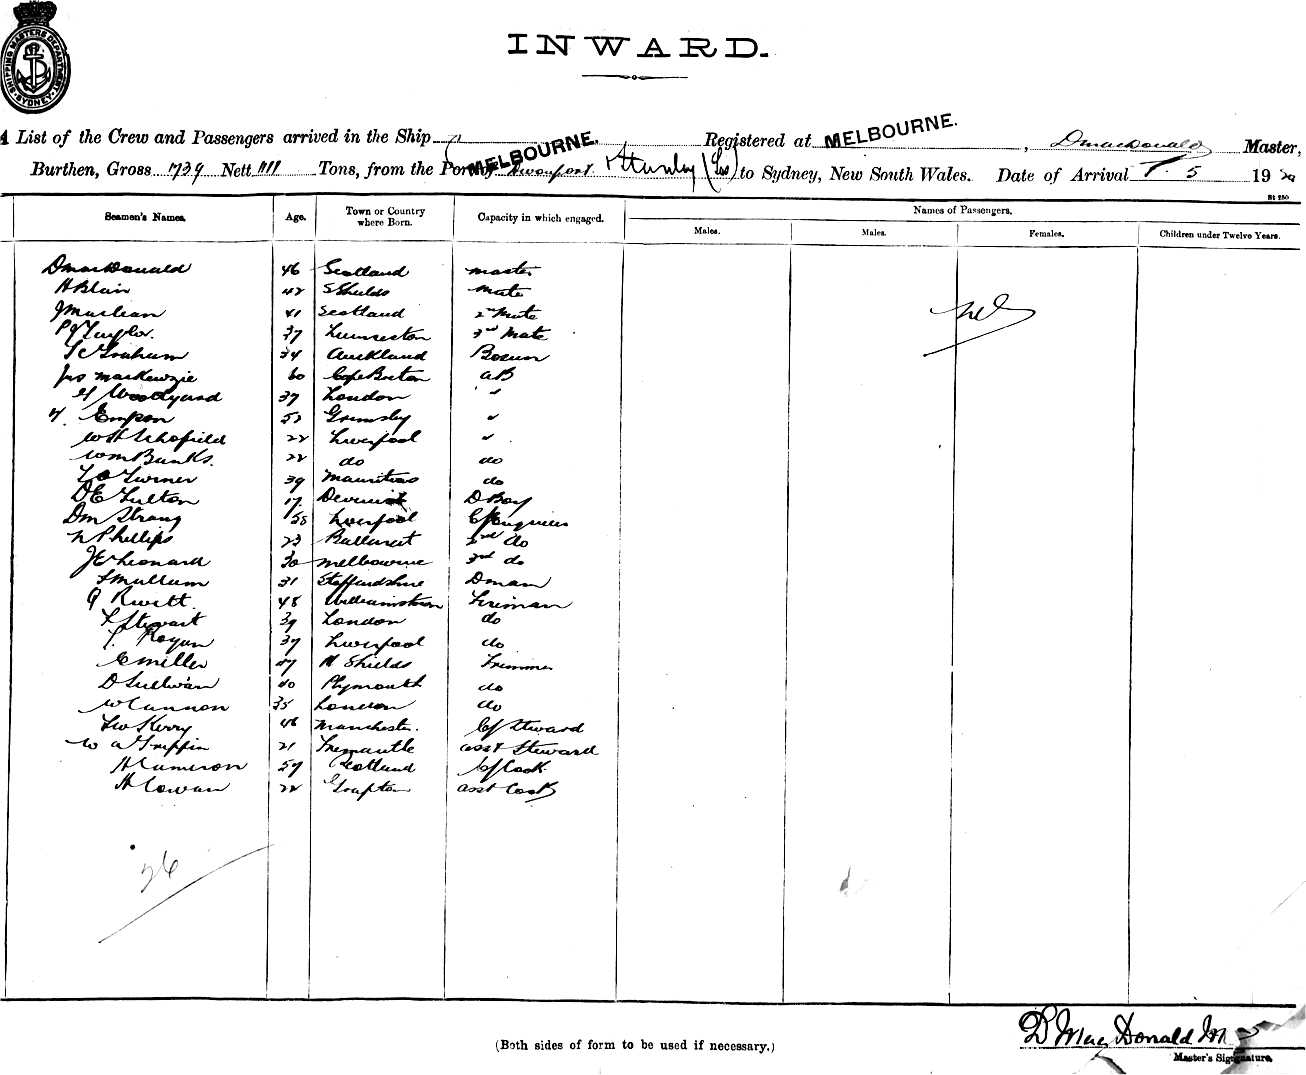 SHIPPING MASTERS DEPARTMENT SYDNEY
INWARD.
A List of the Crew and Passengers arrived in the Ship MELBOURNE. Registered at MELBOURNE. , D MacDonald Master,
Burthen, Gross 1739 Nett 1111 Tons, from the Port of Devonport & Stanley (Tas) to Sydney, New South Wales. Date of Arrival 5 192
Seamen's Names. Age. Town or Country where Born. Capacity in which engaged. Names of Passengers.
Males. Males. Females. Children under Twelve Years.
D MacDonald 46 Scotland Master
H Blair 42 S Shields Mate
J Maclean 41 Scotland 2nd Mate
P J Taylor. 37 Launceston 3rd Mate
Graham 34 Auckland Bosun
Jno MacKenzie 60 Cape Breton AB
Woodyard 37 London "
Empson 52 Grimsby "
W H Schofield 22 Liverpool "
Wm Banks. 22 do do
Turner 39 Mauritius do
D E Fulton 17 D Boy
D M Strang 58 Liverpool Cf Engineer
N Phillips 23 Ballarat 2nd do
J E Leonard 30 Melbourne 3rd do
Mullum 31 Staffordshire Dman
48 Williamstown Fireman
F Stewart 39 London do
T. Rogan 37 Liverpool do
C Miller 47 N Shields Trimmer
D Sullivan 40 Plymouth do
W Cannon 35 London do
Kerry 46 Manchester. Cf Steward
W A Griffin 21 Fremantle Asst Steward
H Cameron 59 Scotland Cf Cook
H Cowan 22 Grafton Asst Cook
Nil
26
D MacDonald
Master's Signature.
(Both sides of form to be used if necessary.)